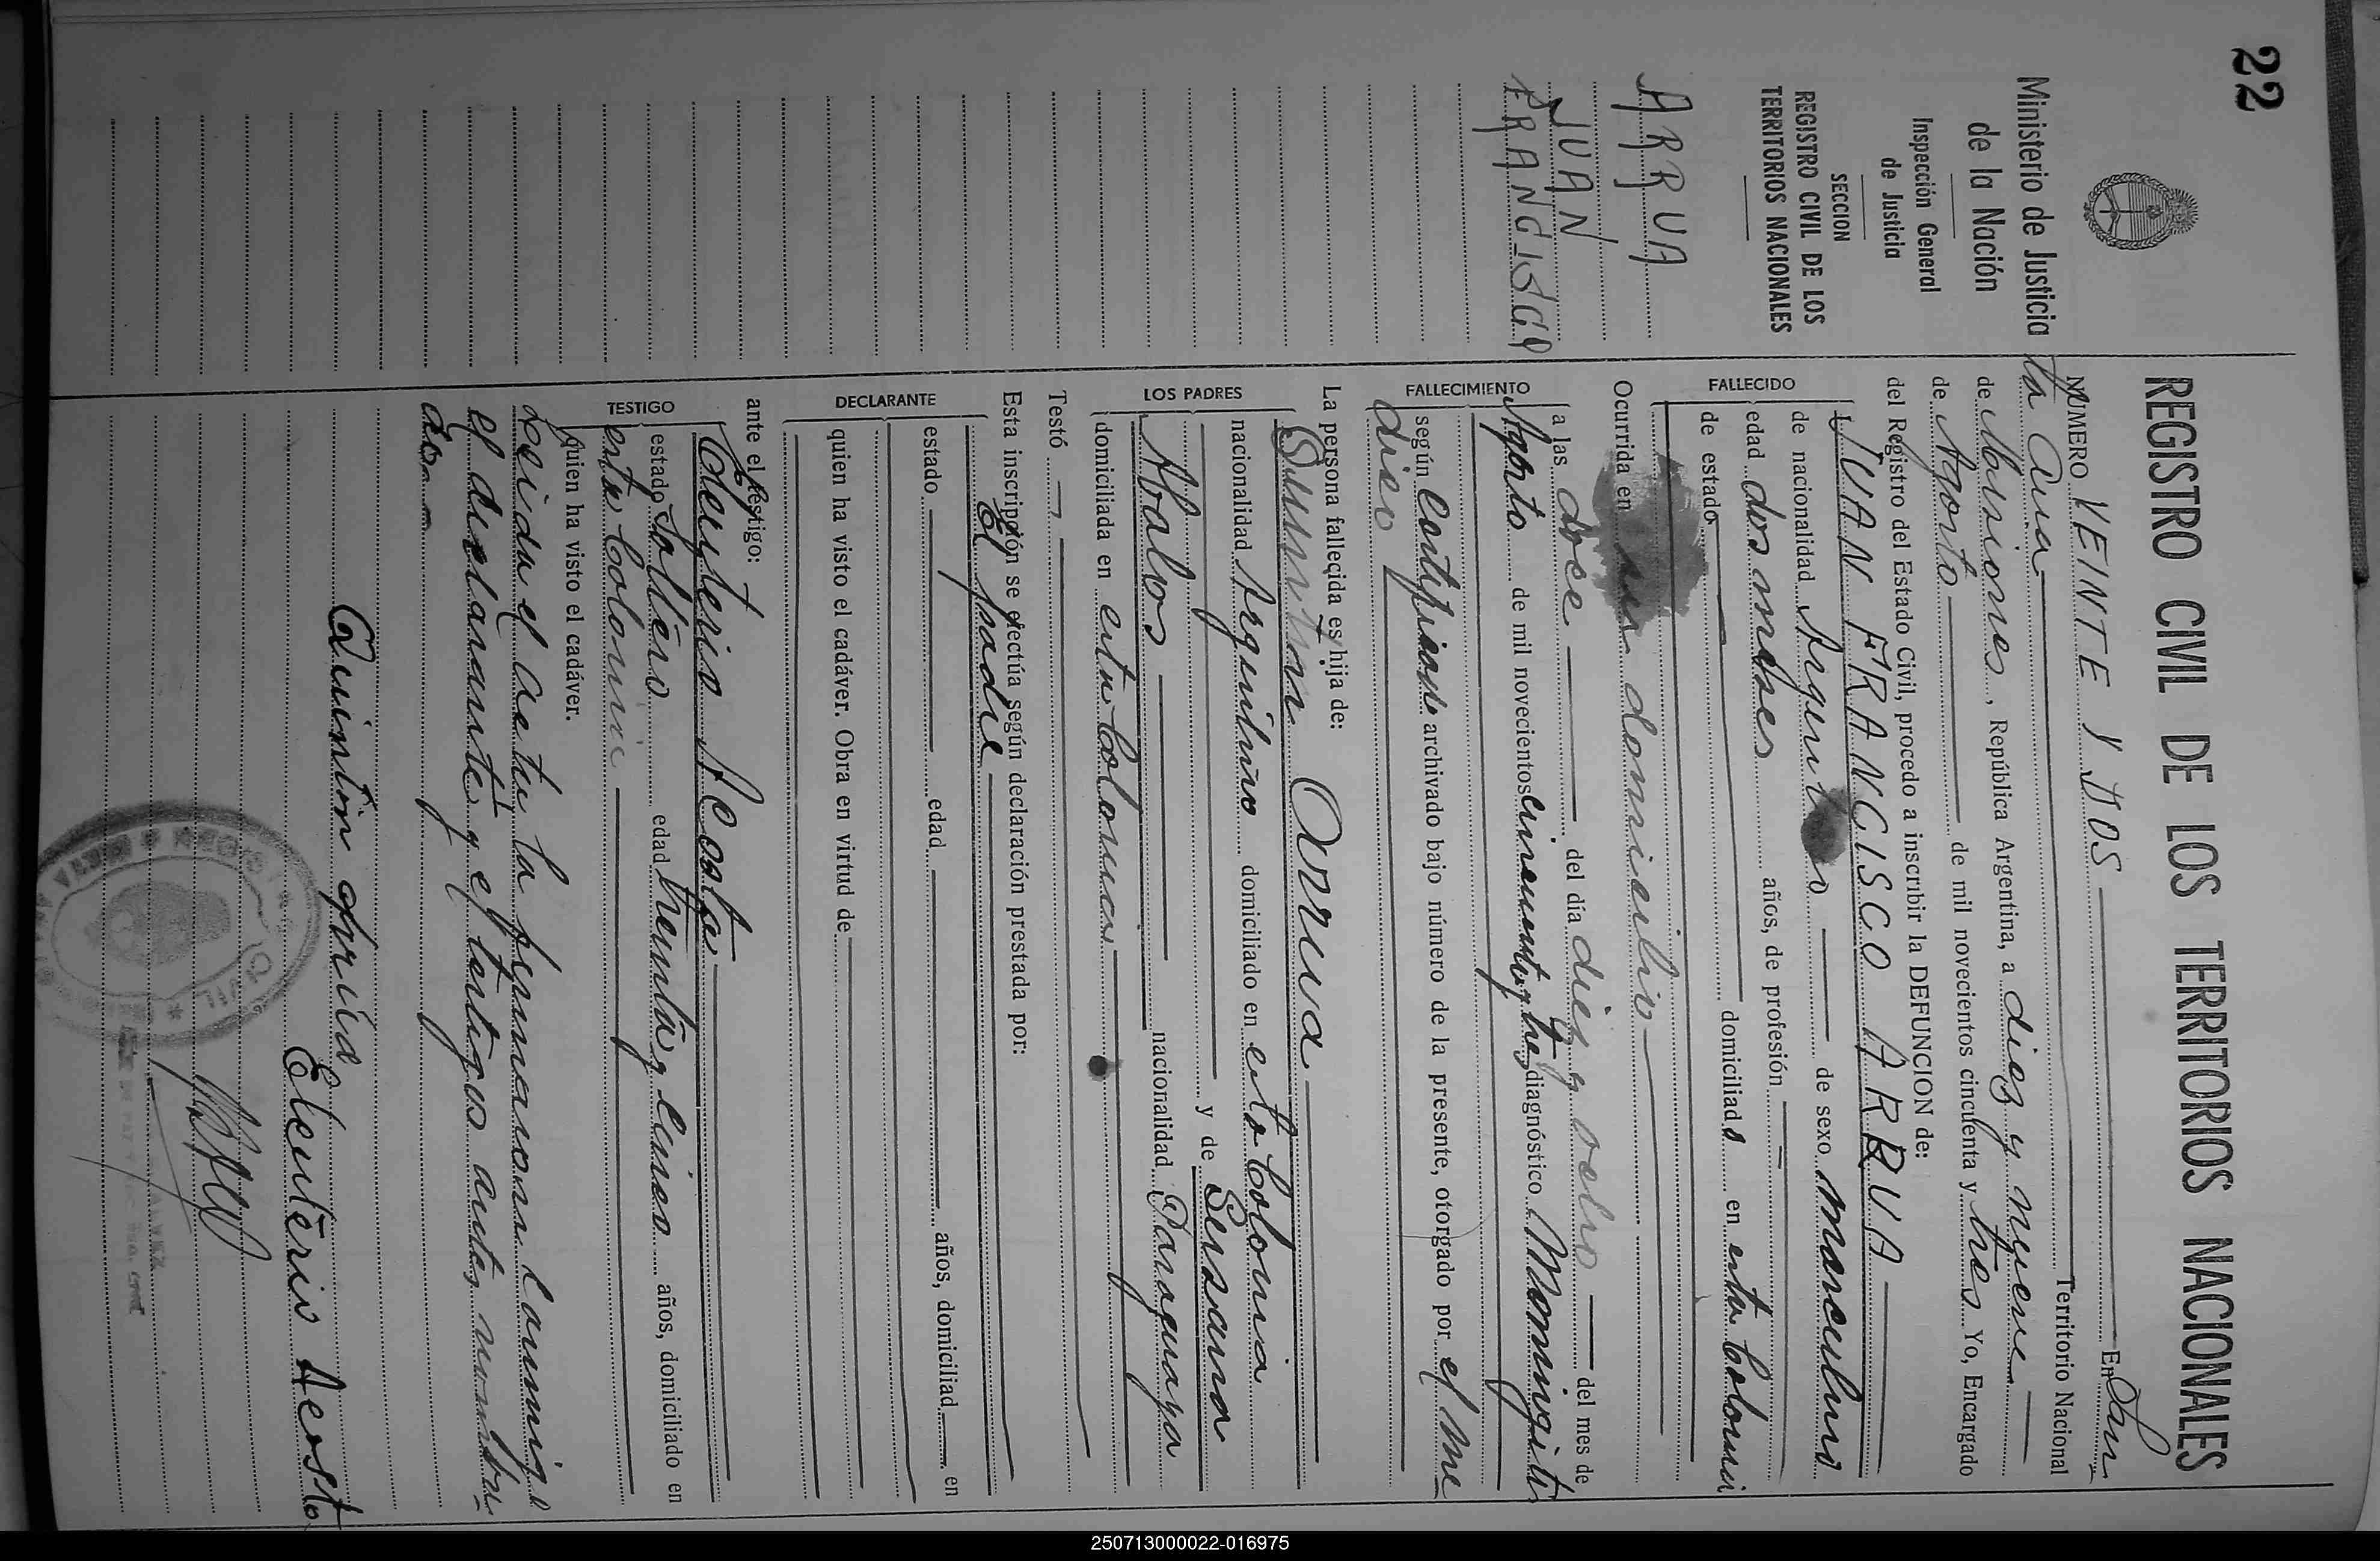 22
Ministerio de Justicia
de la Nación
Inspección General
de Justicia
SECCION
REGISTRO CIVIL DE LOS
TERRITORIOS NACIONALES
ARRUA
JUAN
FRANCISCO
REGISTRO CIVIL DE LOS TERRITORIOS NACIONALES
NUMERO VEINTE Y DOS En San
ta Ana Territorio Nacional
de Misiones, República Argentina, a diez y nueve
de Agosto de mil novecientos cincuenta y tres Yo, Encargado
del Registro del Estado Civil, procedo a inscribir la DEFUNCION de:
FALLECIDO
JUAN FRANCISCO ARRUA
de nacionalidad Argentino de sexo masculino
edad dos meses años, de profesión
de estado domiciliado en esta Colonia
Ocurrida en su domicilio
FALLECIMIENTO
a las doce del día diez y ocho del mes de
Agosto de mil novecientos cincuenta y tres diagnóstico Meningitis
según certificado archivado bajo número de la presente, otorgado por el me
dico
La persona fallecida es hija de:
LOS PADRES
Quintin Arrua
nacionalidad Argentino domiciliado en esta Colonia
y de Susana
Abalos nacionalidad Paraguaya
domiciliada en esta Colonia
Testó
Esta inscripción se efectúa según declaración prestada por:
DECLARANTE
El padre
estado edad años, domiciliad en
quien ha visto el cadáver. Obra en virtud de
ante el testigo:
TESTIGO
Eleuterio Acosta
estado soltero edad treinta y cinco años, domiciliado en
esta Colonia
quien ha visto el cadáver.
Leida el acta la firmaron conmigo
el declarante y el testigo antes nombra
dos
Quintin Arrua
Eleuterio Acosta
250713000022-016975